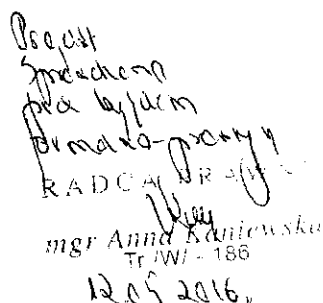 Projekt
Sprawdzono
pod względem
formalno-prawnym
RADCA PRAWNY
mgr Anna Kaniewska
Tr/W/ - 186
2016